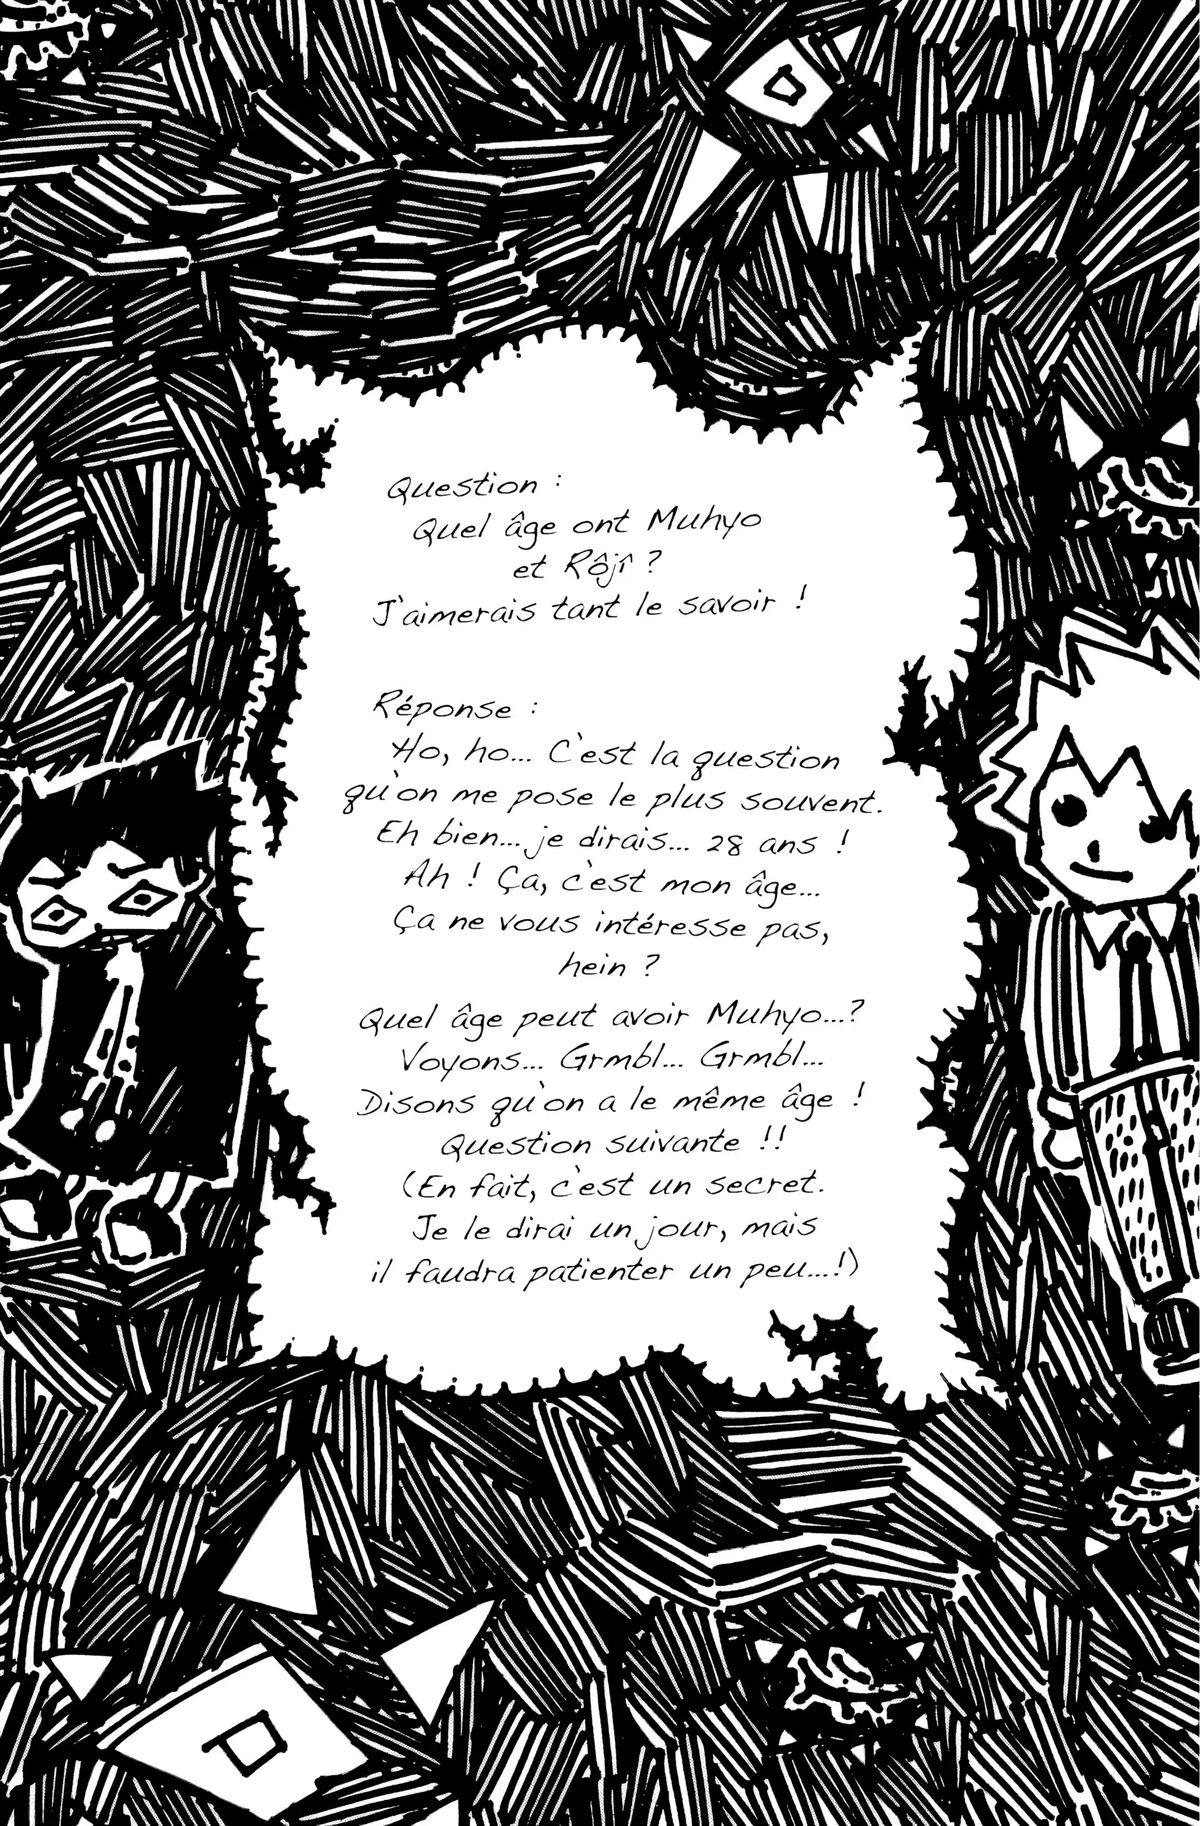 Question :
Quel âge ont Muhyo
et Rôjî ?
J'aimerais tant le savoir !
Réponse :
Ho, ho... C'est la question
qu'on me pose le plus souvent.
Eh bien... je dirais... 28 ans !
Ah ! Ça, c'est mon âge...
Ça ne vous intéresse pas,
hein ?
Quel âge peut avoir Muhyo...?
Voyons... Grmbl... Grmbl...
Disons qu'on a le même âge !
Question suivante !!
(En fait, c'est un secret.
Je le dirai un jour, mais
il faudra patienter un peu...!)